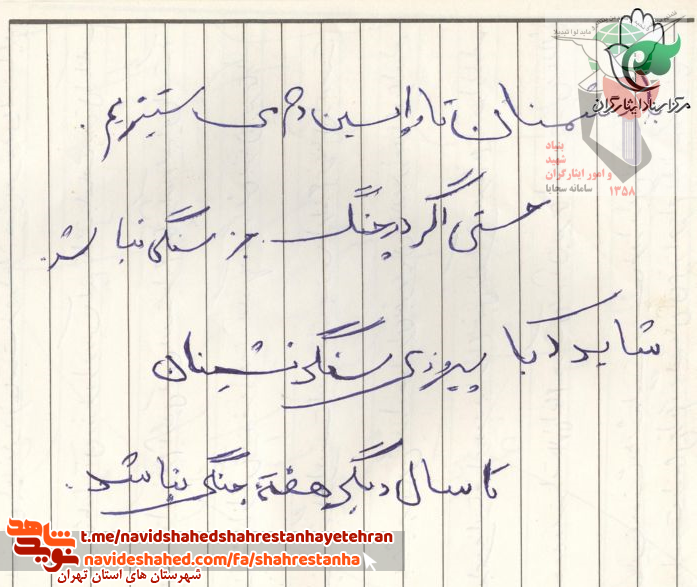 مرکز اسناد ایثارگران
با دشمنان تا واپسین دم می ستیزیم .
بنیاد
شهید
و امور ایثارگران
سامانه سجایا ۱۳۵۸
حتی اگر در چنگ جز سنگی نباشد.
شاید که با پیروزی سنگر نشینان
تا سال دیگر هفته جنگی نباشد.
نوید شاهد
t.me/navidshahedshahrestanhayetehran
navideshahed.com/fa/shahrestanha
شهرستان های استان تهران